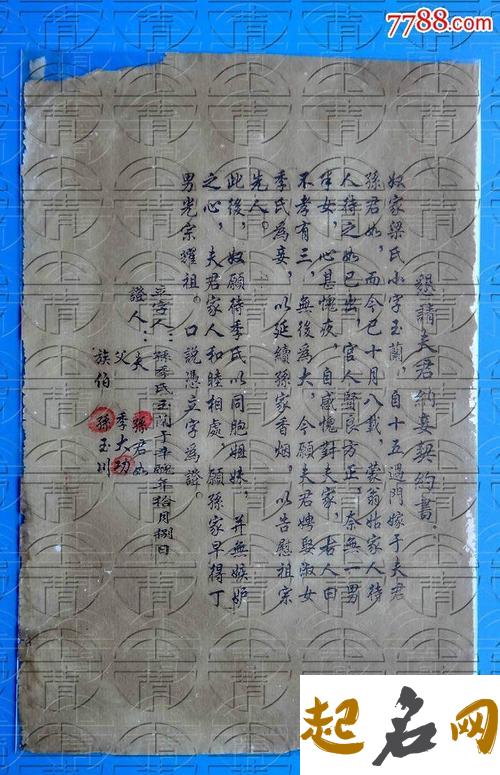 7788.com
懇請夫君納妾契約書：
奴家梁氏小字玉蘭，自十五過門嫁于夫君
孫君如，而今已十月八載，蒙翁姑家人待
人待之如已出，官人賢良方正，奈無一男
半女，心甚愧疚，自感愧對夫家，古人曰
不孝有三，無後為大，今願夫君娉娶淑女
季氏為妾，以延續孫家香烟，以告慰祖宗
先人。
此後，奴願待季氏以同胞姐妹，并無嫉妒
之心，夫君家人和睦相處，願孫家早得丁
男光宗耀祖。口說憑立字為證。
立字人：孫季氏玉蘭于辛酉年拾月捌日
證人：夫 孫君如
父 季大功
族伯 孫玉川
起名网